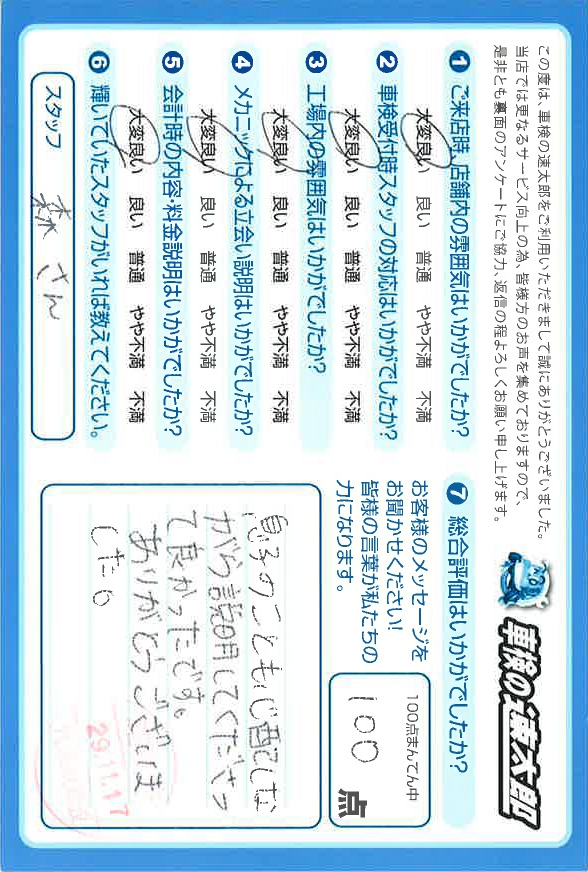 この度は、車検の速太郎をご利用いただきまして誠にありがとうございました。
当店では更なるサービス向上の為、皆様方のお声を集めておりますので、
是非とも裏面のアンケートにご協力、返信の程よろしくお願い申し上げます。
車検の速太郎
1 ご来店時、店舗内の雰囲気はいかがでしたか?
大変良い 良い 普通 やや不満 不満
2 車検受付時スタッフの対応はいかがでしたか?
大変良い 良い 普通 やや不満 不満
3 工場内の雰囲気はいかがでしたか?
大変良い 良い 普通 やや不満 不満
4 メカニックによる立会い説明はいかがでしたか?
大変良い 良い 普通 やや不満 不満
5 会計時の内容・料金説明はいかがでしたか?
大変良い 良い 普通 やや不満 不満
6 輝いていたスタッフがいれば教えてください。
スタッフ
森さん
7 総合評価はいかがでしたか?
お客様のメッセージを
お聞かせください!
皆様の言葉が私たちの
力になります。
100点まんてん中
100
点
息子のことも心配しな
がら説明してくださっ
て良かったです。
ありがとうございま
した。
29.11.17